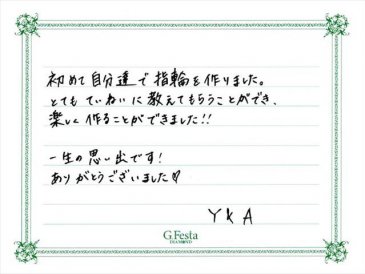 初めて自分達で指輪を作りました。
とてもていねいに教えてもらうことができ、
楽しく作ることができました!!
一生の思い出です!
ありがとうございました♡
YKA
G.Festa
DIAMOND